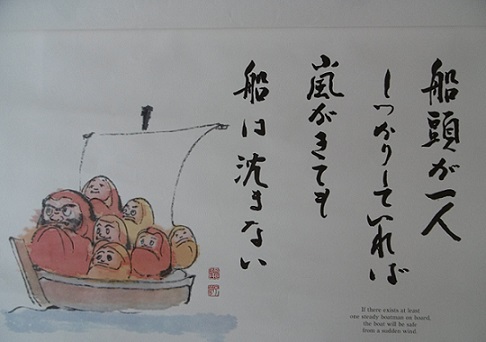 船頭が一人
しっかりしていれば
嵐がきても
船は沈まない
If there exists at least
one steady boatman on board,
the boat will be safe
from a sudden wind.